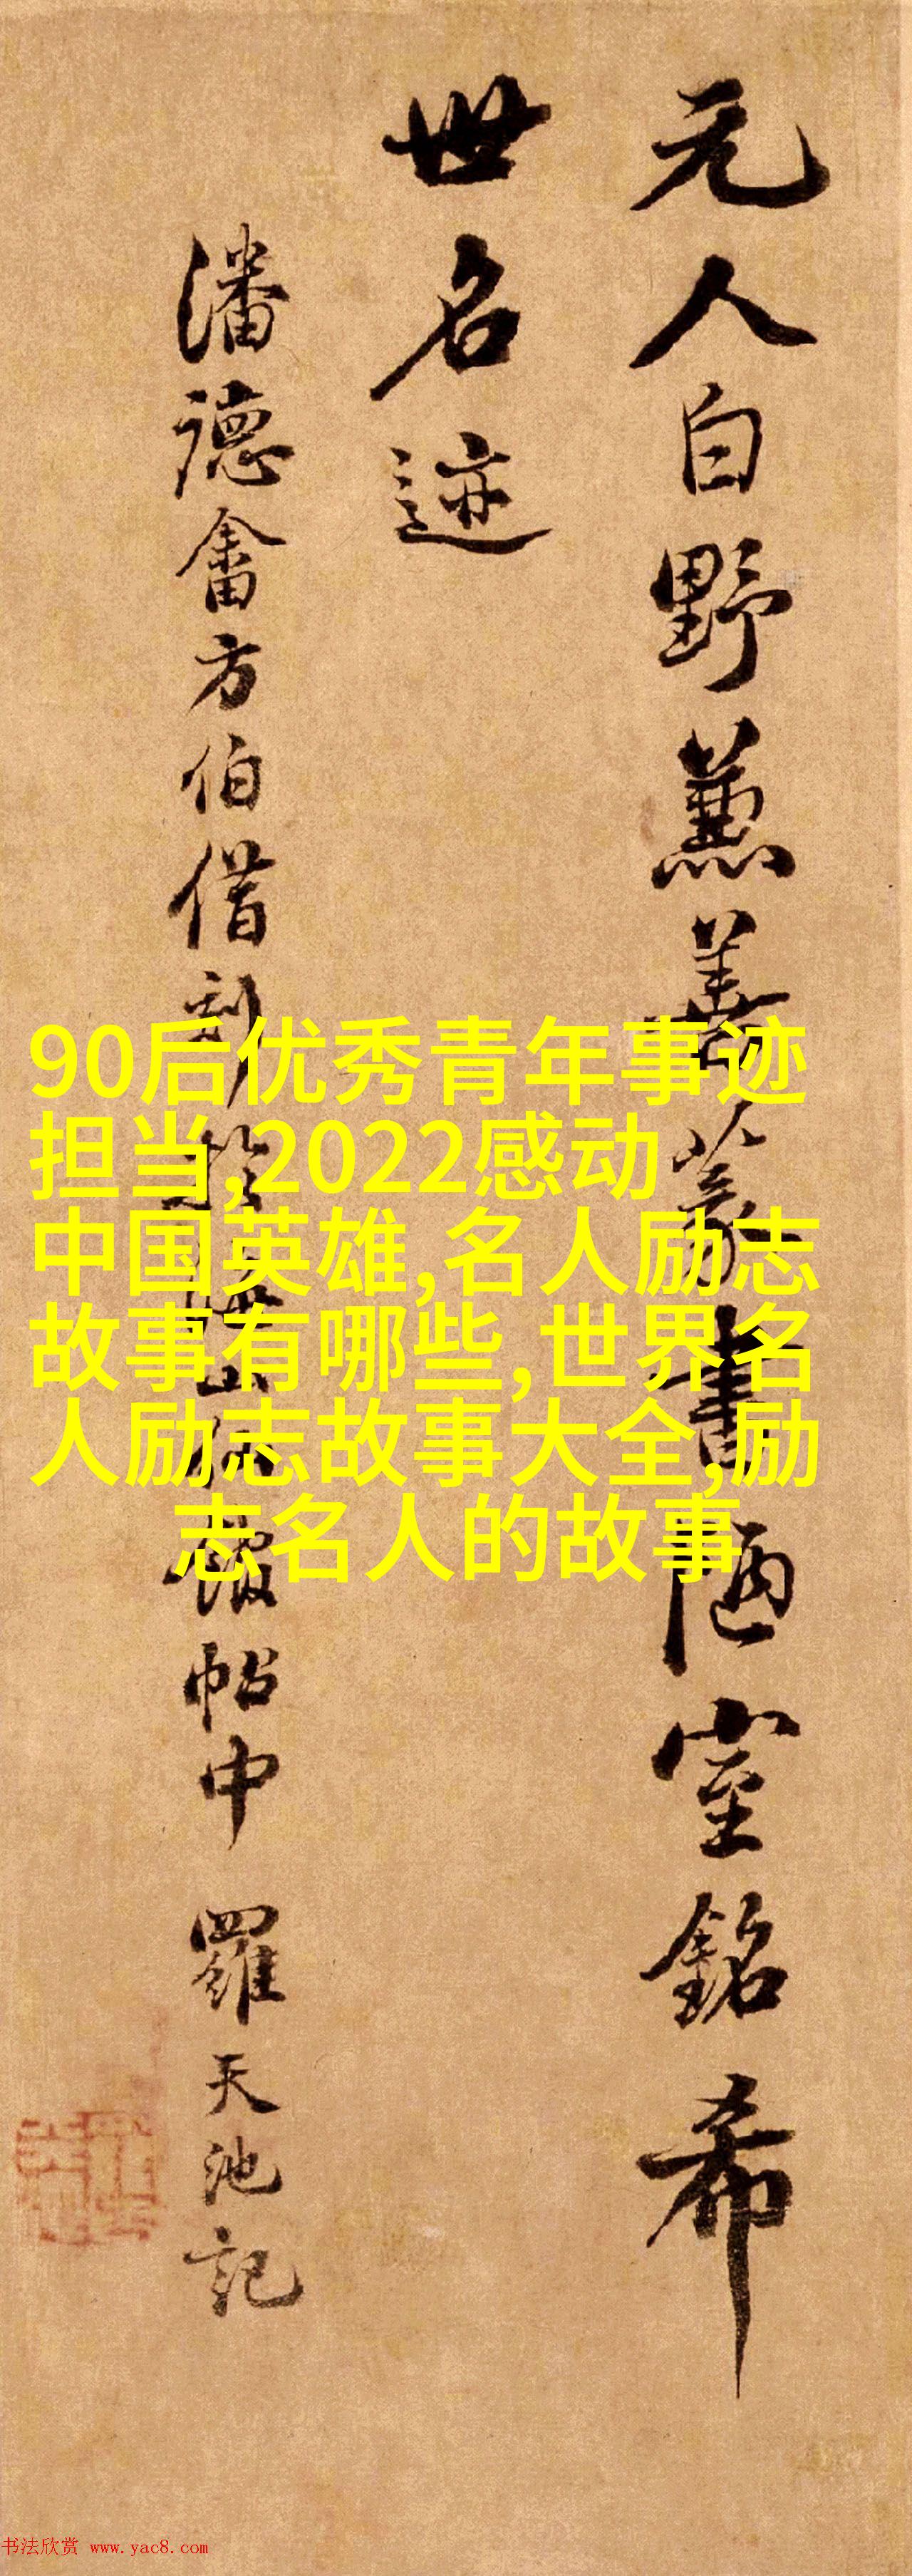 元人白野兼善篆書陋室銘希
世名迹
潘德畬方伯借刻於海山仙館帖中 羅天池記
90后优秀青年事迹
担当,2022感动
中国英雄,名人励志
故事有哪些,世界名
人励志故事大全,励
志名人的故事
书法欣赏 www.yac8.com